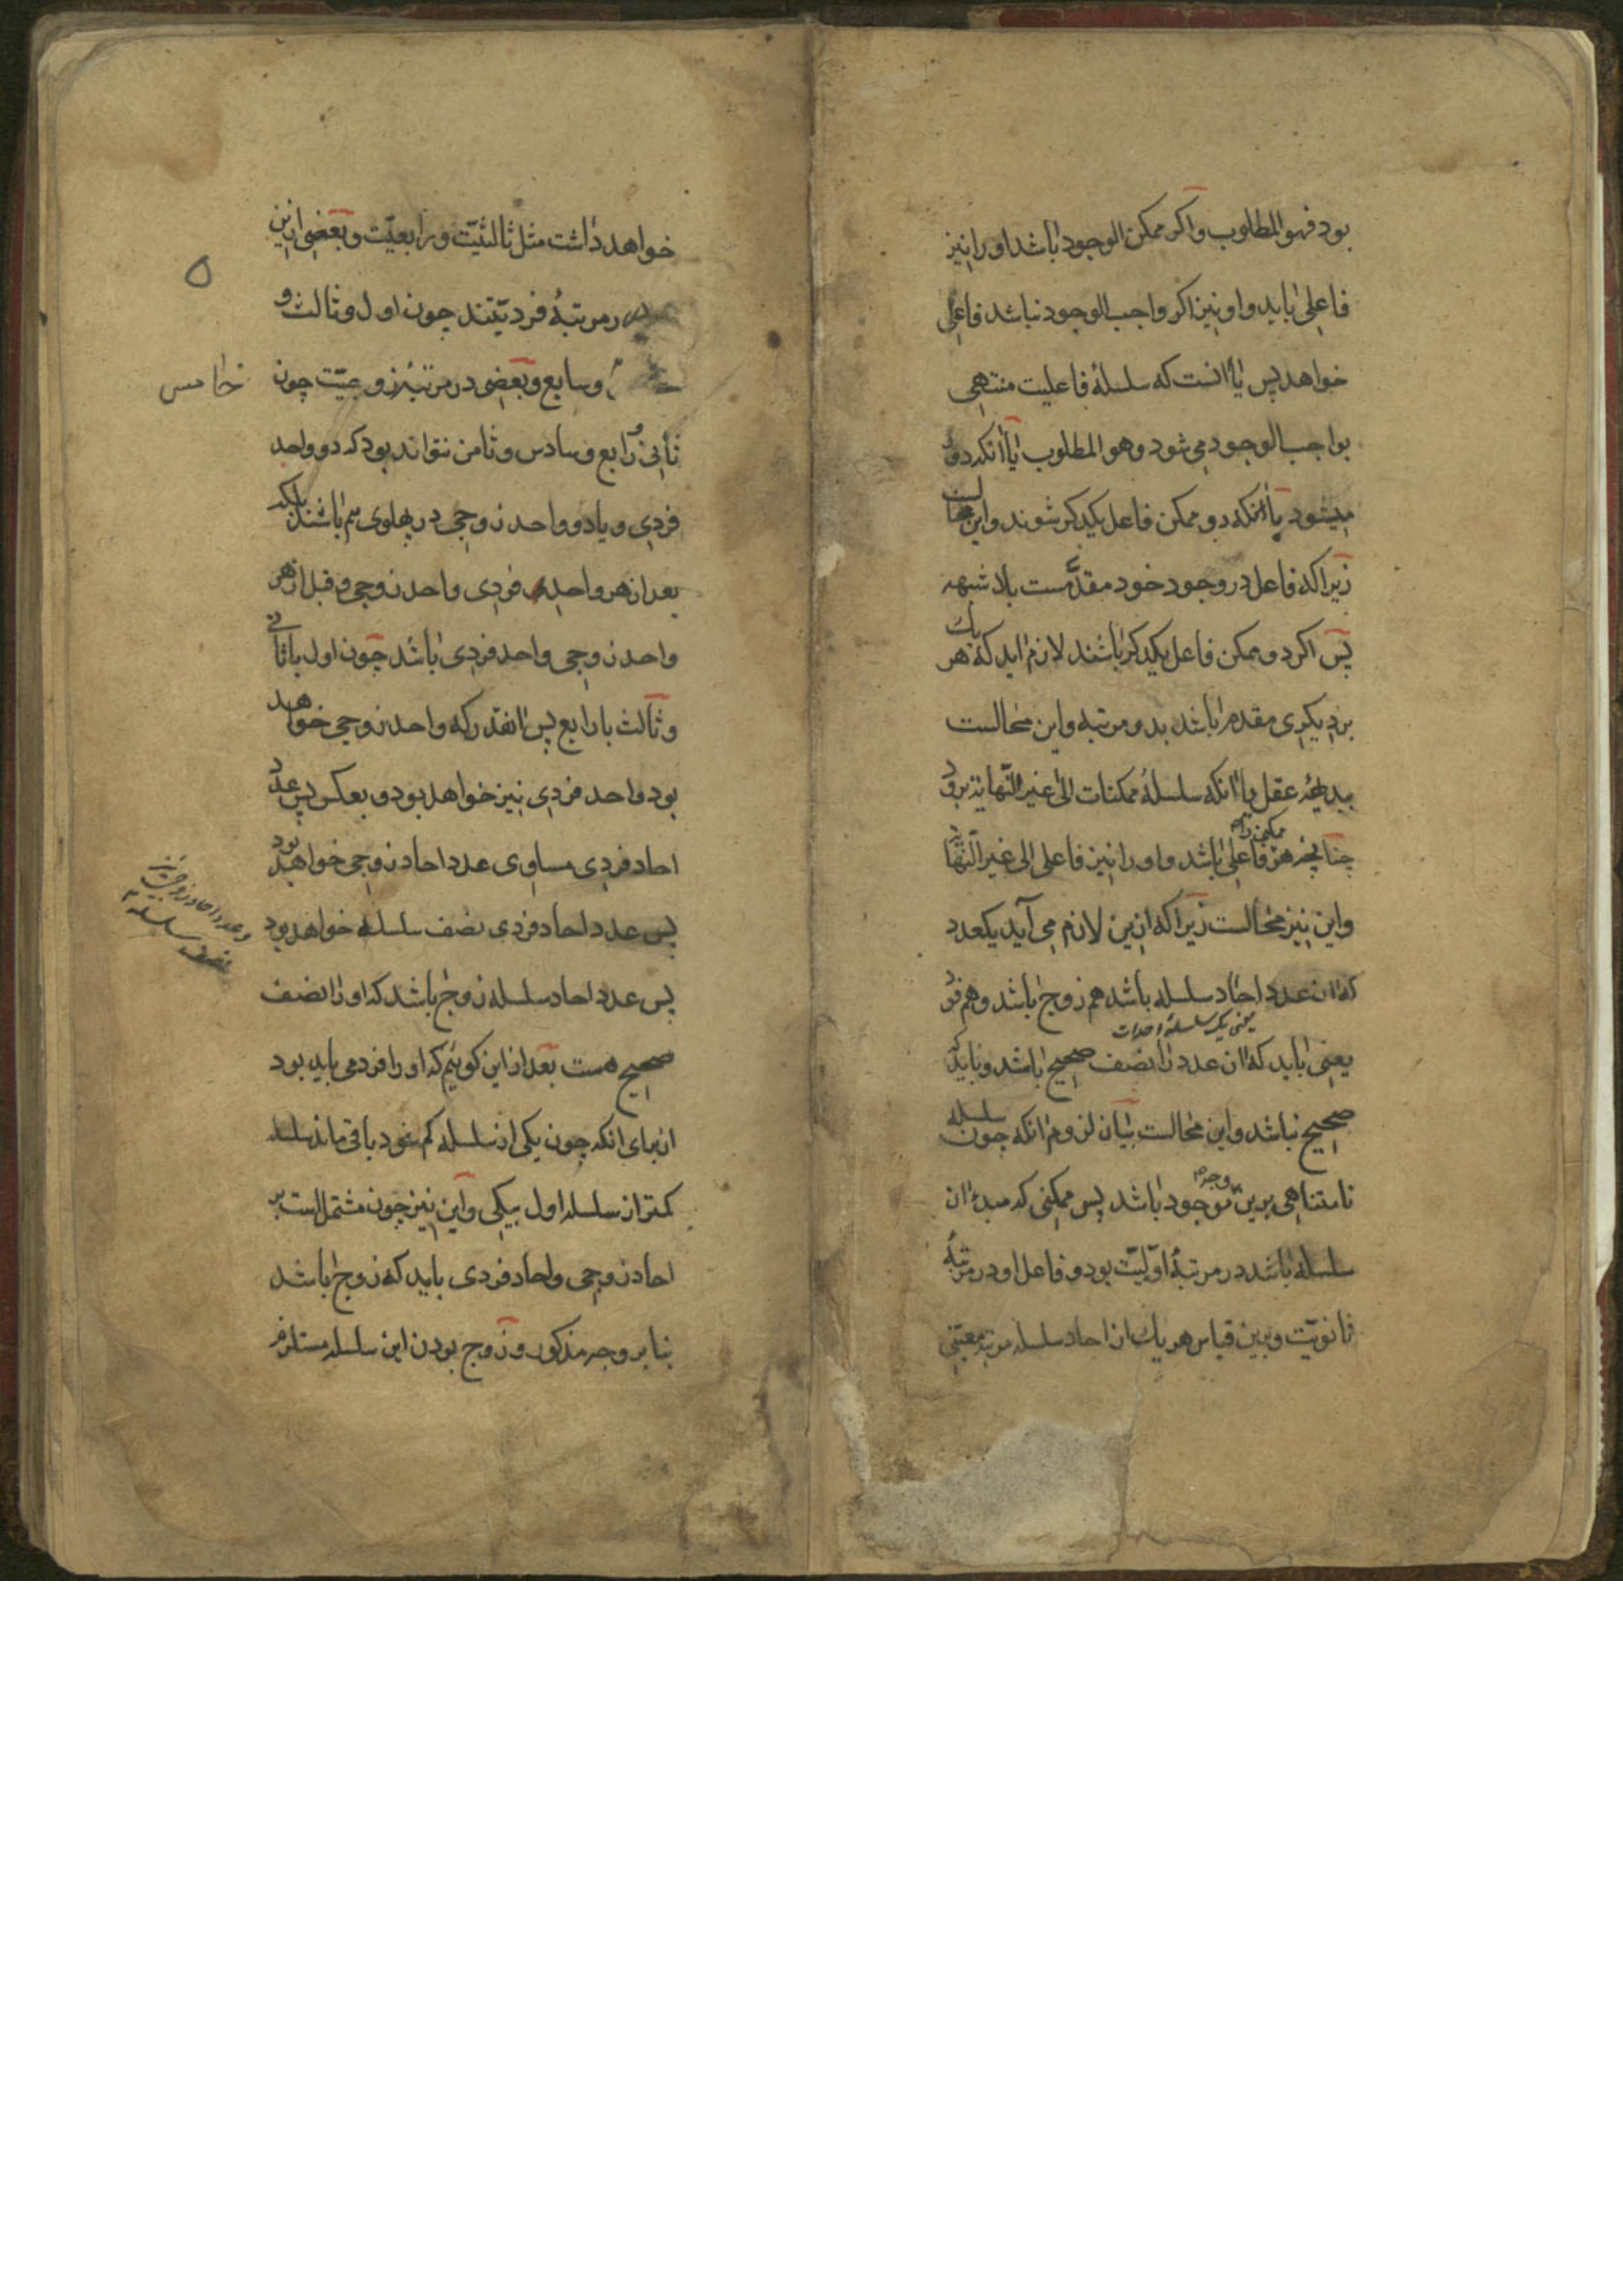 بود فهو المطلوب واکر ممکن الوجود باشد او را نیز
فاعلی باید و او نیز اکر واجب الوجود نباشد فاعلی
خواهد پس یا انست که سلسلهٔ فاعلیت منتهی
بواجب الوجود می شود وهو المطلوب یا انکه دور
میشود یا انکه دو ممکن فاعل یکدکر شوند و این محالست
زیرا که فاعل در وجود خود مقدّمست بلا شبهه
پس اکر دو ممکن فاعل یکدکر باشند لازم اید که هر یک
بر دیکری مقدم باشد بدو مرتبه و این محالست
ببدیههٔ عقل یا انکه سلسلهٔ ممکنات الی غیر النّهایة برود
چنانچه هر ممکن را فاعلی باشد و او را نیز فاعلی الی غیر النّهایة
و این نیز محالست زیرا که ازین لازم می آید یکعدد
که ان عدد احاد سلسله باشد هم زوج باشد و هم فرد
یعنی یک سلسلهٔ احداث
یعنی باید که ان عدد را نصف صحیح باشد و باید که
صحیح نباشد و این محالست بیان لزوم انکه چون سلسله
نامتناهی برین وجه موجود باشد پس ممکنی که مبدء ان
سلسله باشد در مرتبهٔ اوّلیّت بود و فاعل او در مرتبهٔ
ثانویّت و برین قیاس هر یک از احاد سلسله مرتبه معیّنی
خواهد داشت مثل ثالثیّت و رابعیّت و بعضی ازین
در مرتبهٔ فردیّتند چون اول و ثالث و
خامس
و سابع و بعضی در مرتبهٔ زوجیّت چون
ثانی و رابع و سادس و ثامن نتواند بود که دو واحد
فردی و یا دو واحد زوجی در پهلوی هم باشند بلکه
بعد از هر واحد فردی واحد زوجی و قبل از هر
واحد زوجی واحد فردی باشد چون اول با ثانی
و ثالث با رابع پس انقدر که واحد زوجی خواهد
بود واحد فردی نیز خواهد بود و بعکس پس عدد
احاد فردی مساوی عدد احاد زوجی خواهد بود
پس عدد احاد فردی نصف سلسله خواهد بود
و عدد احاد زوجی نیز
نصف سلسله
پس عدد احاد سلسله زوج باشد که او را نصف
صحیح هست بعد از این کوئیم که او را فرد می باید بود
از برای انکه چون یکی از سلسله کم شود باقی ماند سلسله
کمتر از سلسله اول بیکی و این نیز چون مشتمل است بر
احاد زوجی و احاد فردی باید که زوج باشد
بنابر وجه مذکور و زوج بودن این سلسله مستلزم